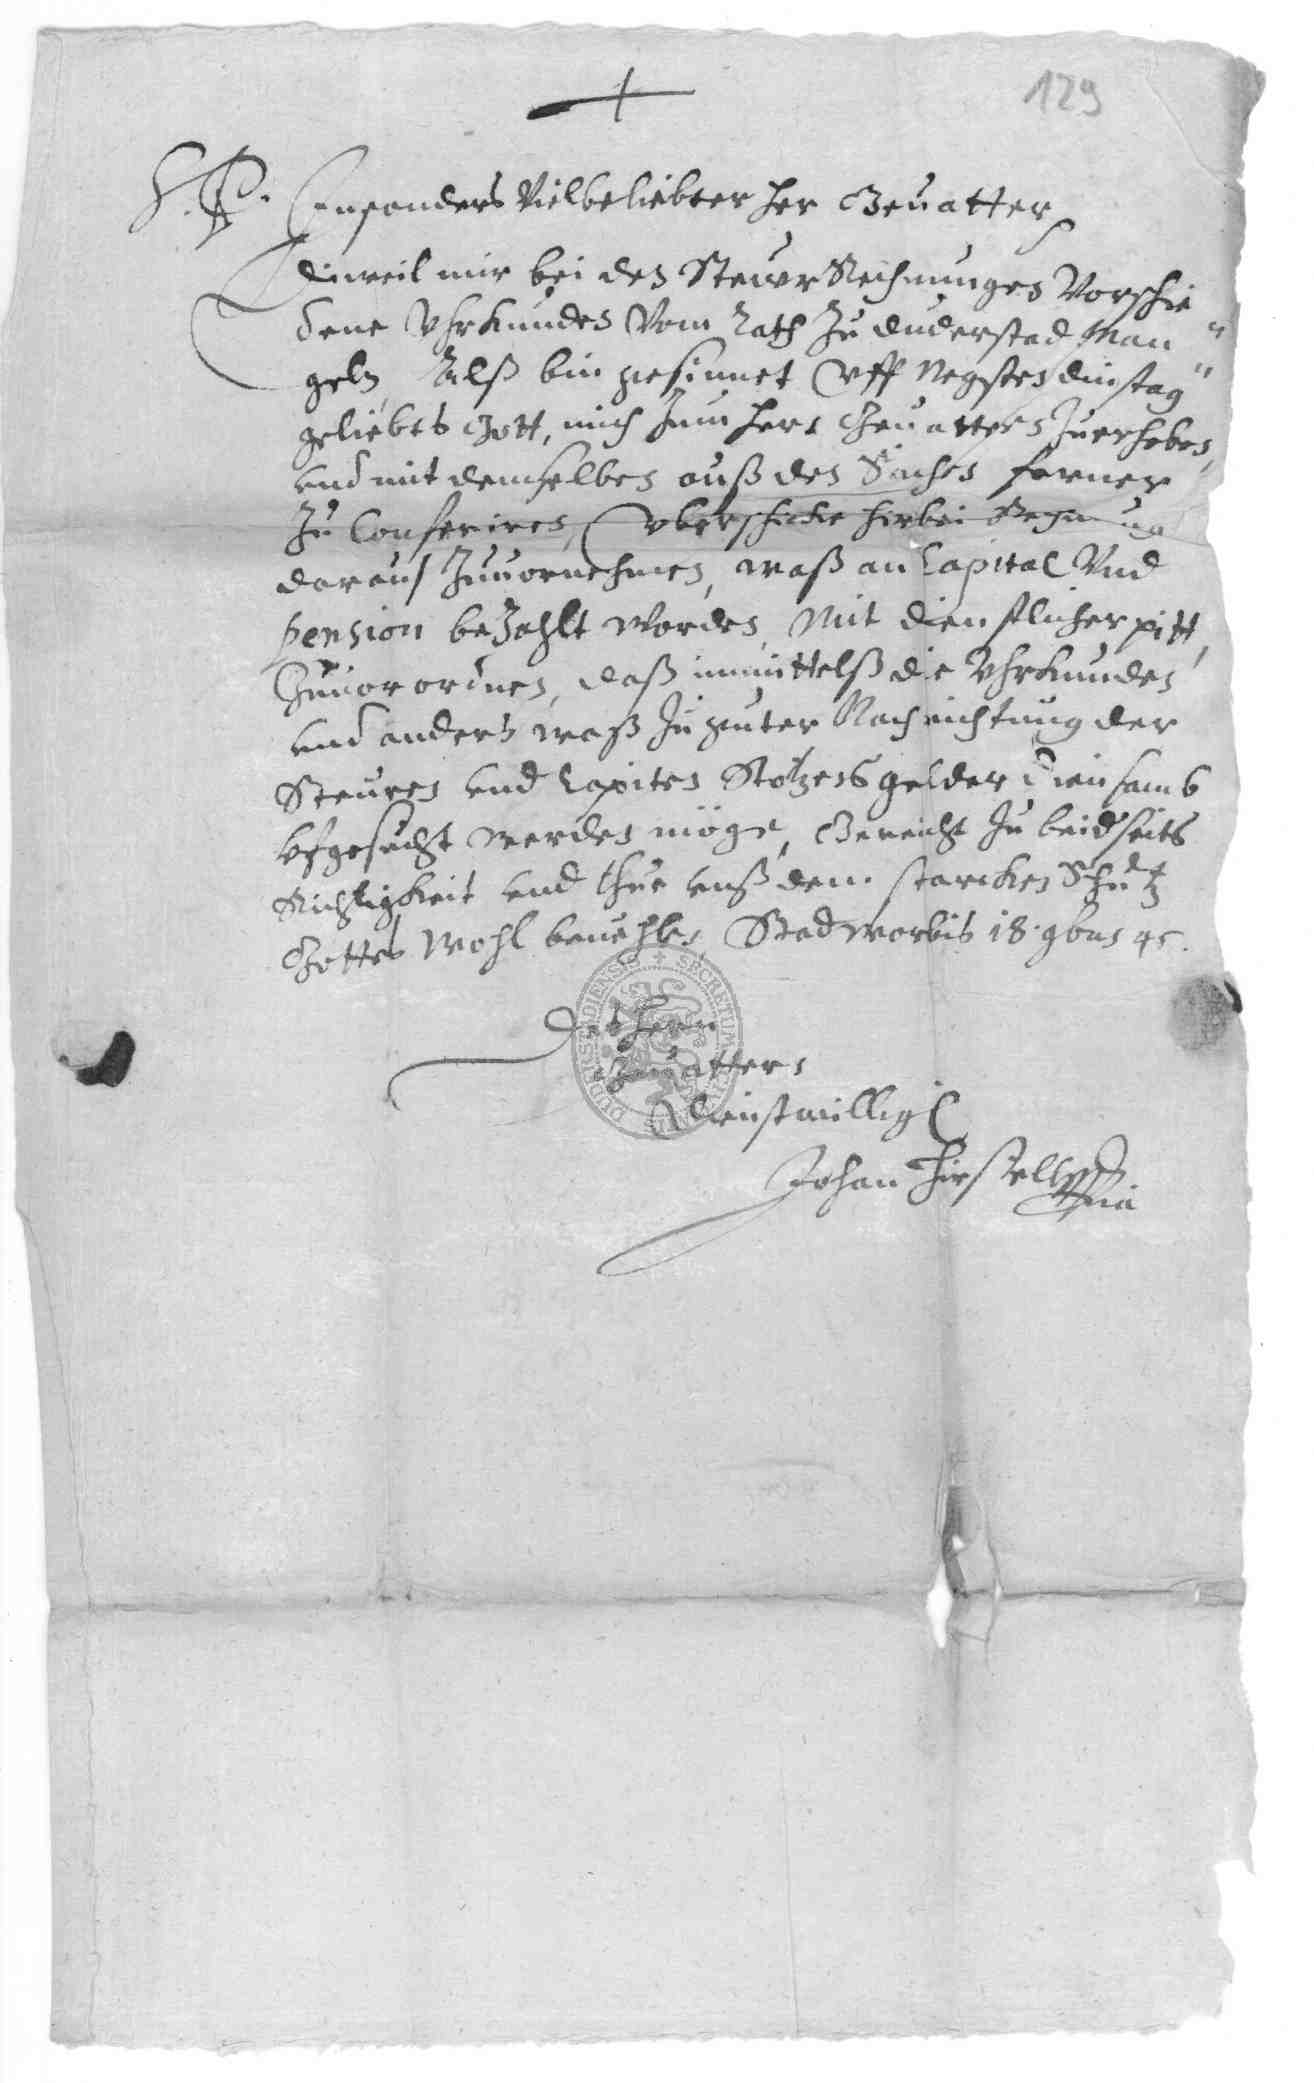 129
S. P. Insonders Vielbeliebter her Gevatter
dieweil mir bei den Steuer Rechnungen Vorschie
dene Uhrkunden Vom Rath Zu duderstad Man
geln, Alß bin gesinnet Uff Negsten dinstag
geliebts Gott, mich zum hern Gevattern Zuerheben,
und mit demselben auß den Sachen ferner
Zu Conferiren, Uberschicke hierbei
darauß Zuvornehmen, waß an Capital Und
pension beZahlt worden, Mit dienstlicher pitt,
Zuvorordnen, daß inmittelß die Uhrkunden
und anders waß Zu guter Nachrichtung der
Steuren und gelder diensamb
Ufgesucht werden möge, Gereicht Zu beidseits
Richtigkeit und thue unß dem starcken Schutz
Gottes Wohl bevehlen, Stadworbis 18. 9bris 45.
Des hern
Gevattern
dienstwilliger
Johan
DUDERSTADIENSIS + SECRETUM